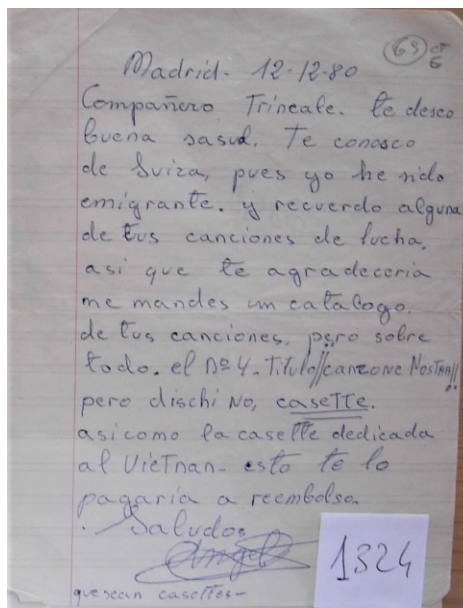 69 CT
6
Madrid- 12-12-80
Compañero Trincale. te deseo
buena sasud. Te conosco
de Suiza, pues yo he sido
emigrante. y recuerdo alguna
de tus canciones de lucha,
asi que te agradeceria
me mandes un catalogo.
de tus canciones, pero sobre
todo. el nº 4- Titulo//canzone NosTRA//
pero dischi No, caseTTe.
asi como la casette dedicada
al VieTnan- esto te lo
pagaria a reembolso.
. Saludos
Angel
que sean casettes-
1324